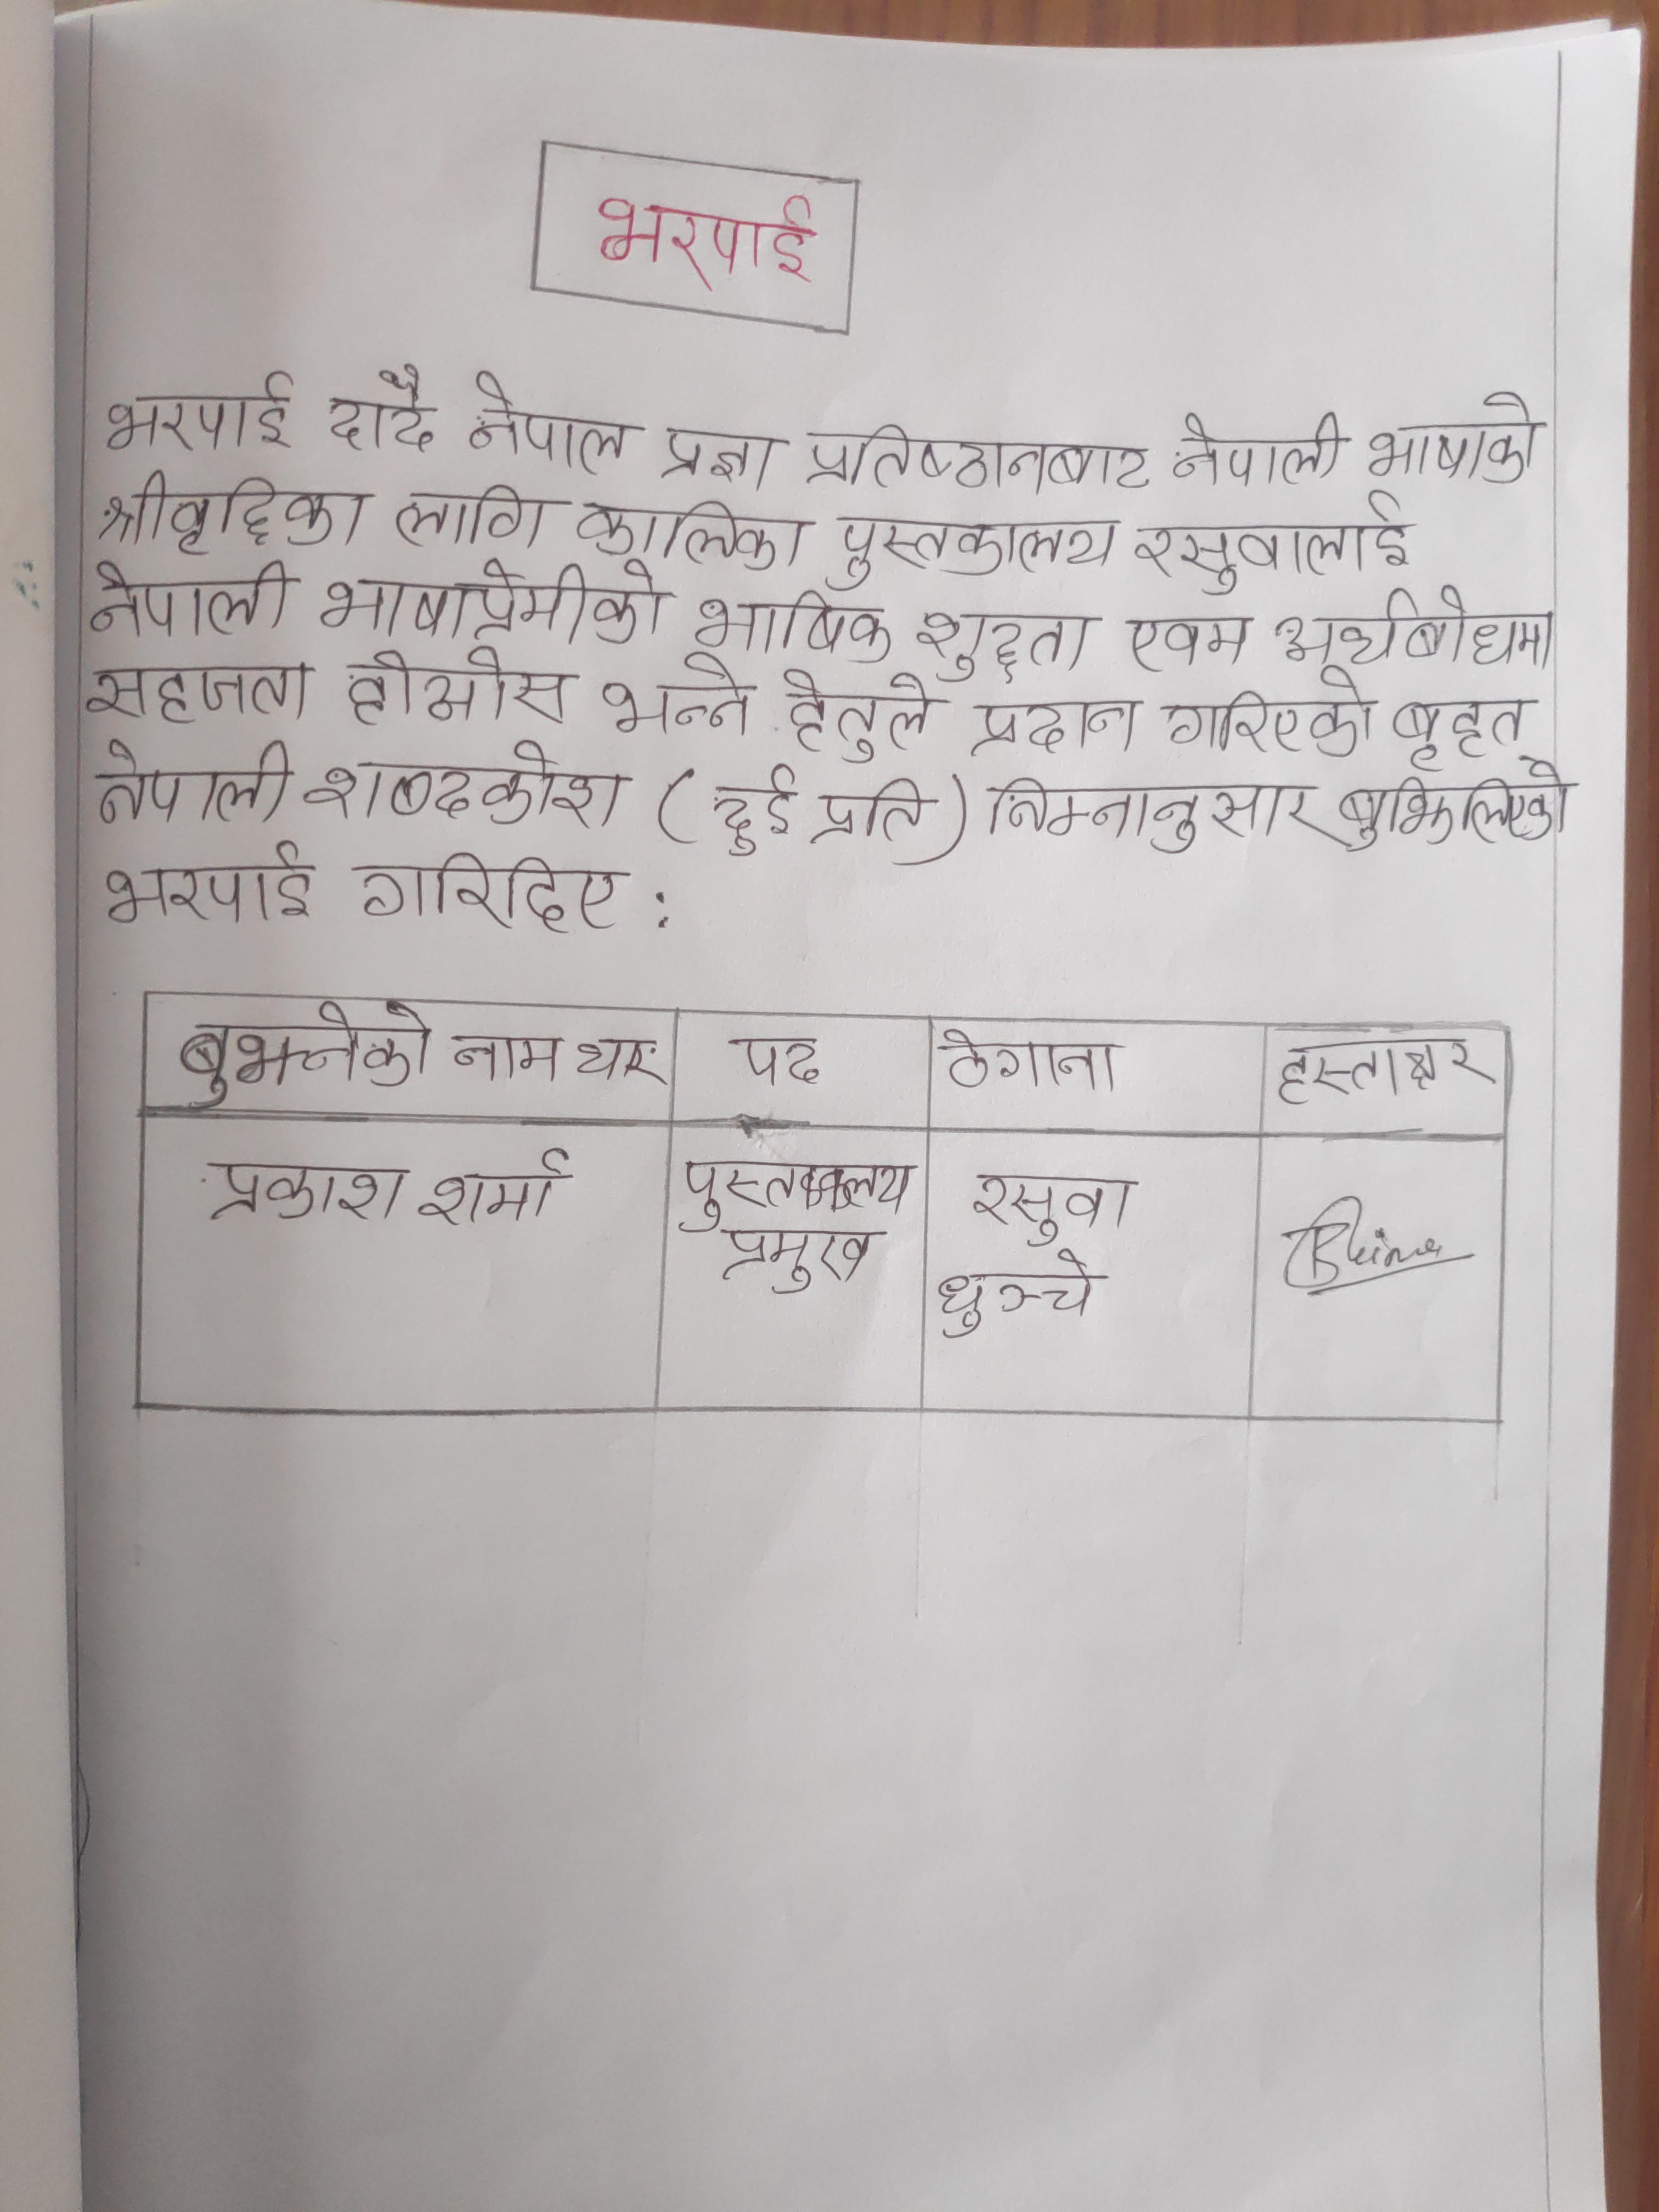 भरपाई
भरपाई दादै नेपाल प्रज्ञा प्रतिष्ठानबाट नेपाली भाषाको
श्रीवृद्दिका लागि कालिका पुस्तकालय रसुवालाई
नेपाली भाषाप्रेमीको भाषिक शुद्दता एवम अर्थबोधमा
सहजता होओस भन्ने हेतुले प्रदान गरिएको बृहत्
नेपाली शब्दकोश (दुई प्रति) निम्नानुसार बुझिलिएको
भरपाई गरिदिए :
बुझ्नेको नाम थर पद ठेगाना हस्ताक्षर
प्रकाश शर्मा पुस्तकालय रसुवा
प्रमुख धुञ्चे